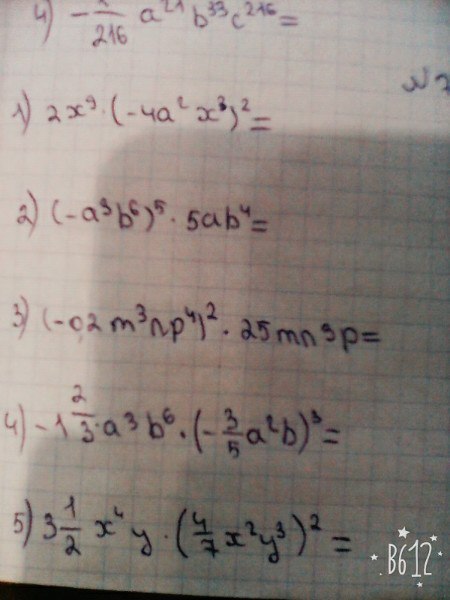 216 a²¹ b³³ c²¹⁶ =
№ 7
1) 2x⁹ · (-4a² x³)² =
2) (-a³b⁶)⁵ · 5ab⁴ =
3) (-0,2 m³np⁴)² · 25mn3p =
4) -1 2/3 · a³ b⁶ · (- 3/5 a²b)³ =
5) 3 1/2 x⁴ y · (4/7 x²y³)² =
B612